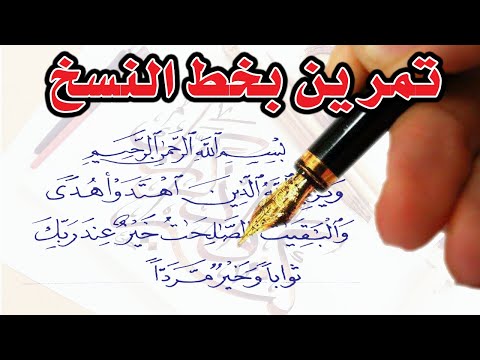 تمرين بخط النسخ
بِسْمِ اللَّهِ الرَّحْمٰنِ الرَّحِيمِ
اللَّهُ الَّذِينَ اهْتَدَوْا هُدًى
وَالْبٰقِيَتُ الصّٰلِحٰتُ خَيْرٌ عِندَ رَبِّكَ
ثوَاباً وَخَيْرٌ مَّرَدّاً